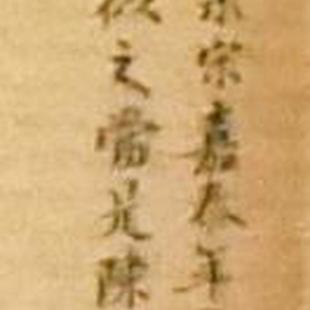 宗嘉泰年
之當是陳